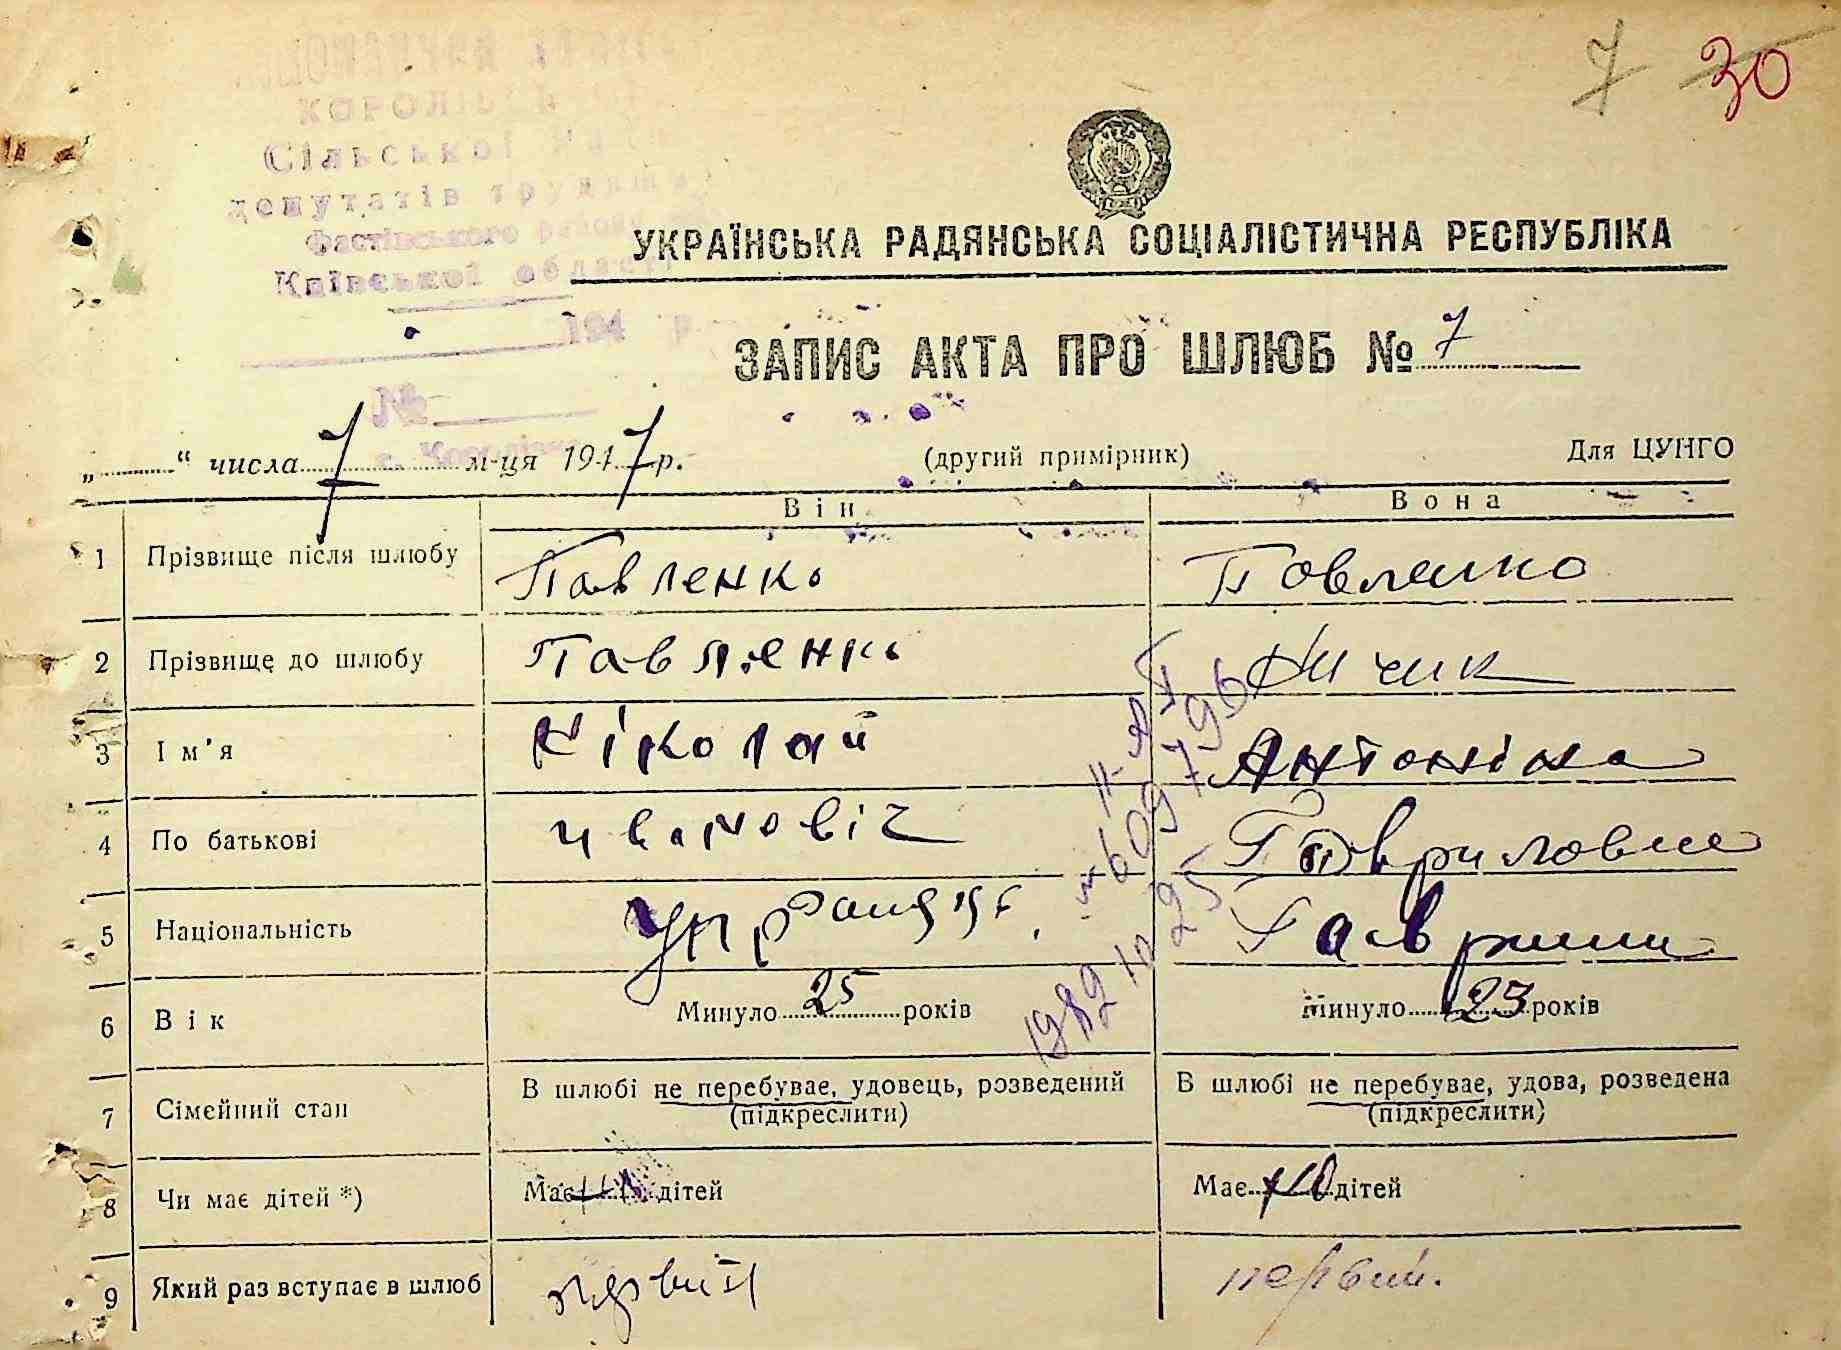 7 30
Сільської
депутатів трудящ
Фастівського району
Київської області
194 р.
№
УКРАЇНСЬКА РАДЯНСЬКА СОЦІАЛІСТИЧНА РЕСПУБЛІКА
ЗАПИС АКТА ПРО ШЛЮБ № 7
„ “ числа 7 м-ця 1947 р. (другий примірник) Для ЦУНГО
Він Вона
1 Прізвище після шлюбу Павленко Повленко
2 Прізвище до шлюбу Павленко
3 Ім’я Ніколай Антоніна
4 По батькові Івановіч Гавриловна
5 Національність
6 Вік Минуло 25 років Минуло 23 років
7 Сімейний стан В шлюбі не перебуває, удовець, розведений (підкреслити) В шлюбі не перебуває, удова, розведена (підкреслити)
8 Чи має дітей *) Має дітей Має дітей
9 Який раз вступає в шлюб первий первий.